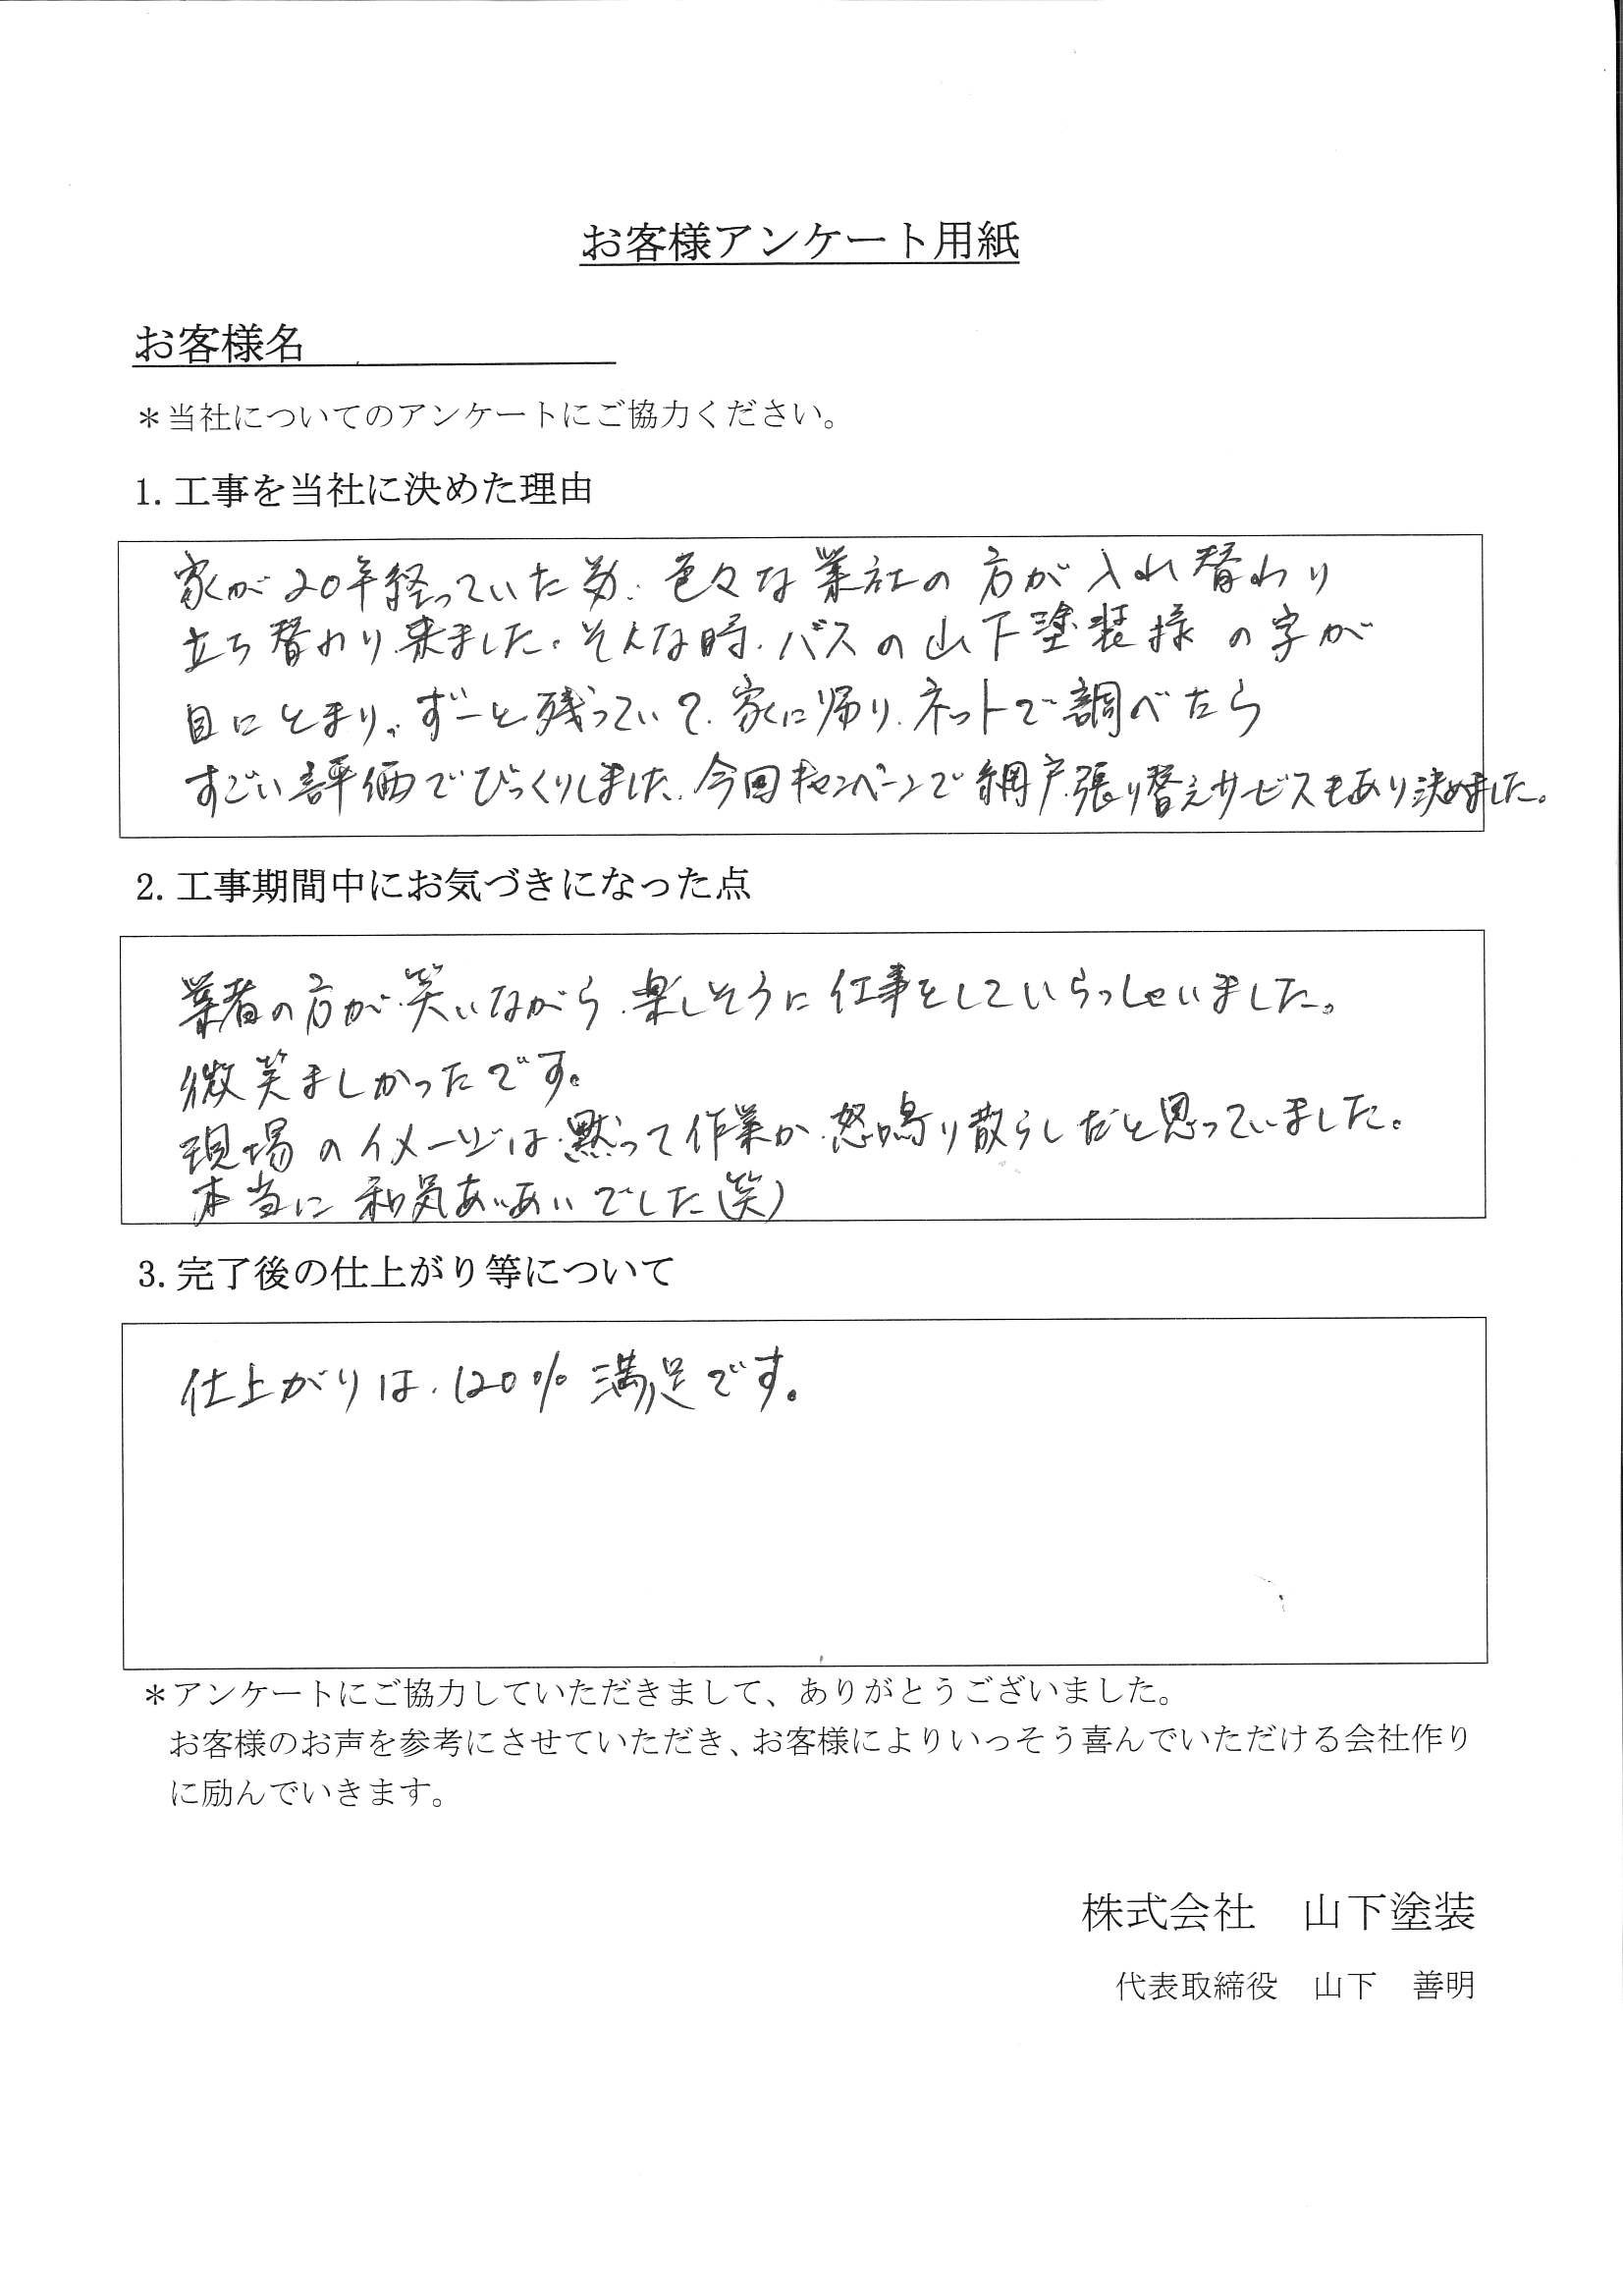 お客様アンケート用紙
お客様名
＊当社についてのアンケートにご協力ください。
1. 工事を当社に決めた理由
家が20年経っていた為、色々な業社の方が入れ替わり
立ち替わり来ました。そんな時、バスの山下塗装様の字が
目にとまり、ずーと残っていて、家に帰り、ネットで調べたら
すごい評価でびっくりしました。今回キャンペーンで網戸張り替えサービスもあり決めました。
2. 工事期間中にお気づきになった点
業者の方が、笑いながら、楽しそうに仕事をしていらっしゃいました。
微笑ましかったです。
現場のイメージは、黙って作業か、怒鳴り散らしだと思っていました。
本当に和気あいあいでした(笑)
3. 完了後の仕上がり等について
仕上がりは、120%満足です。
＊アンケートにご協力していただきまして、ありがとうございました。
お客様のお声を参考にさせていただき、お客様によりいっそう喜んでいただける会社作り
に励んでいきます。
株式会社　山下塗装
代表取締役　山下　善明